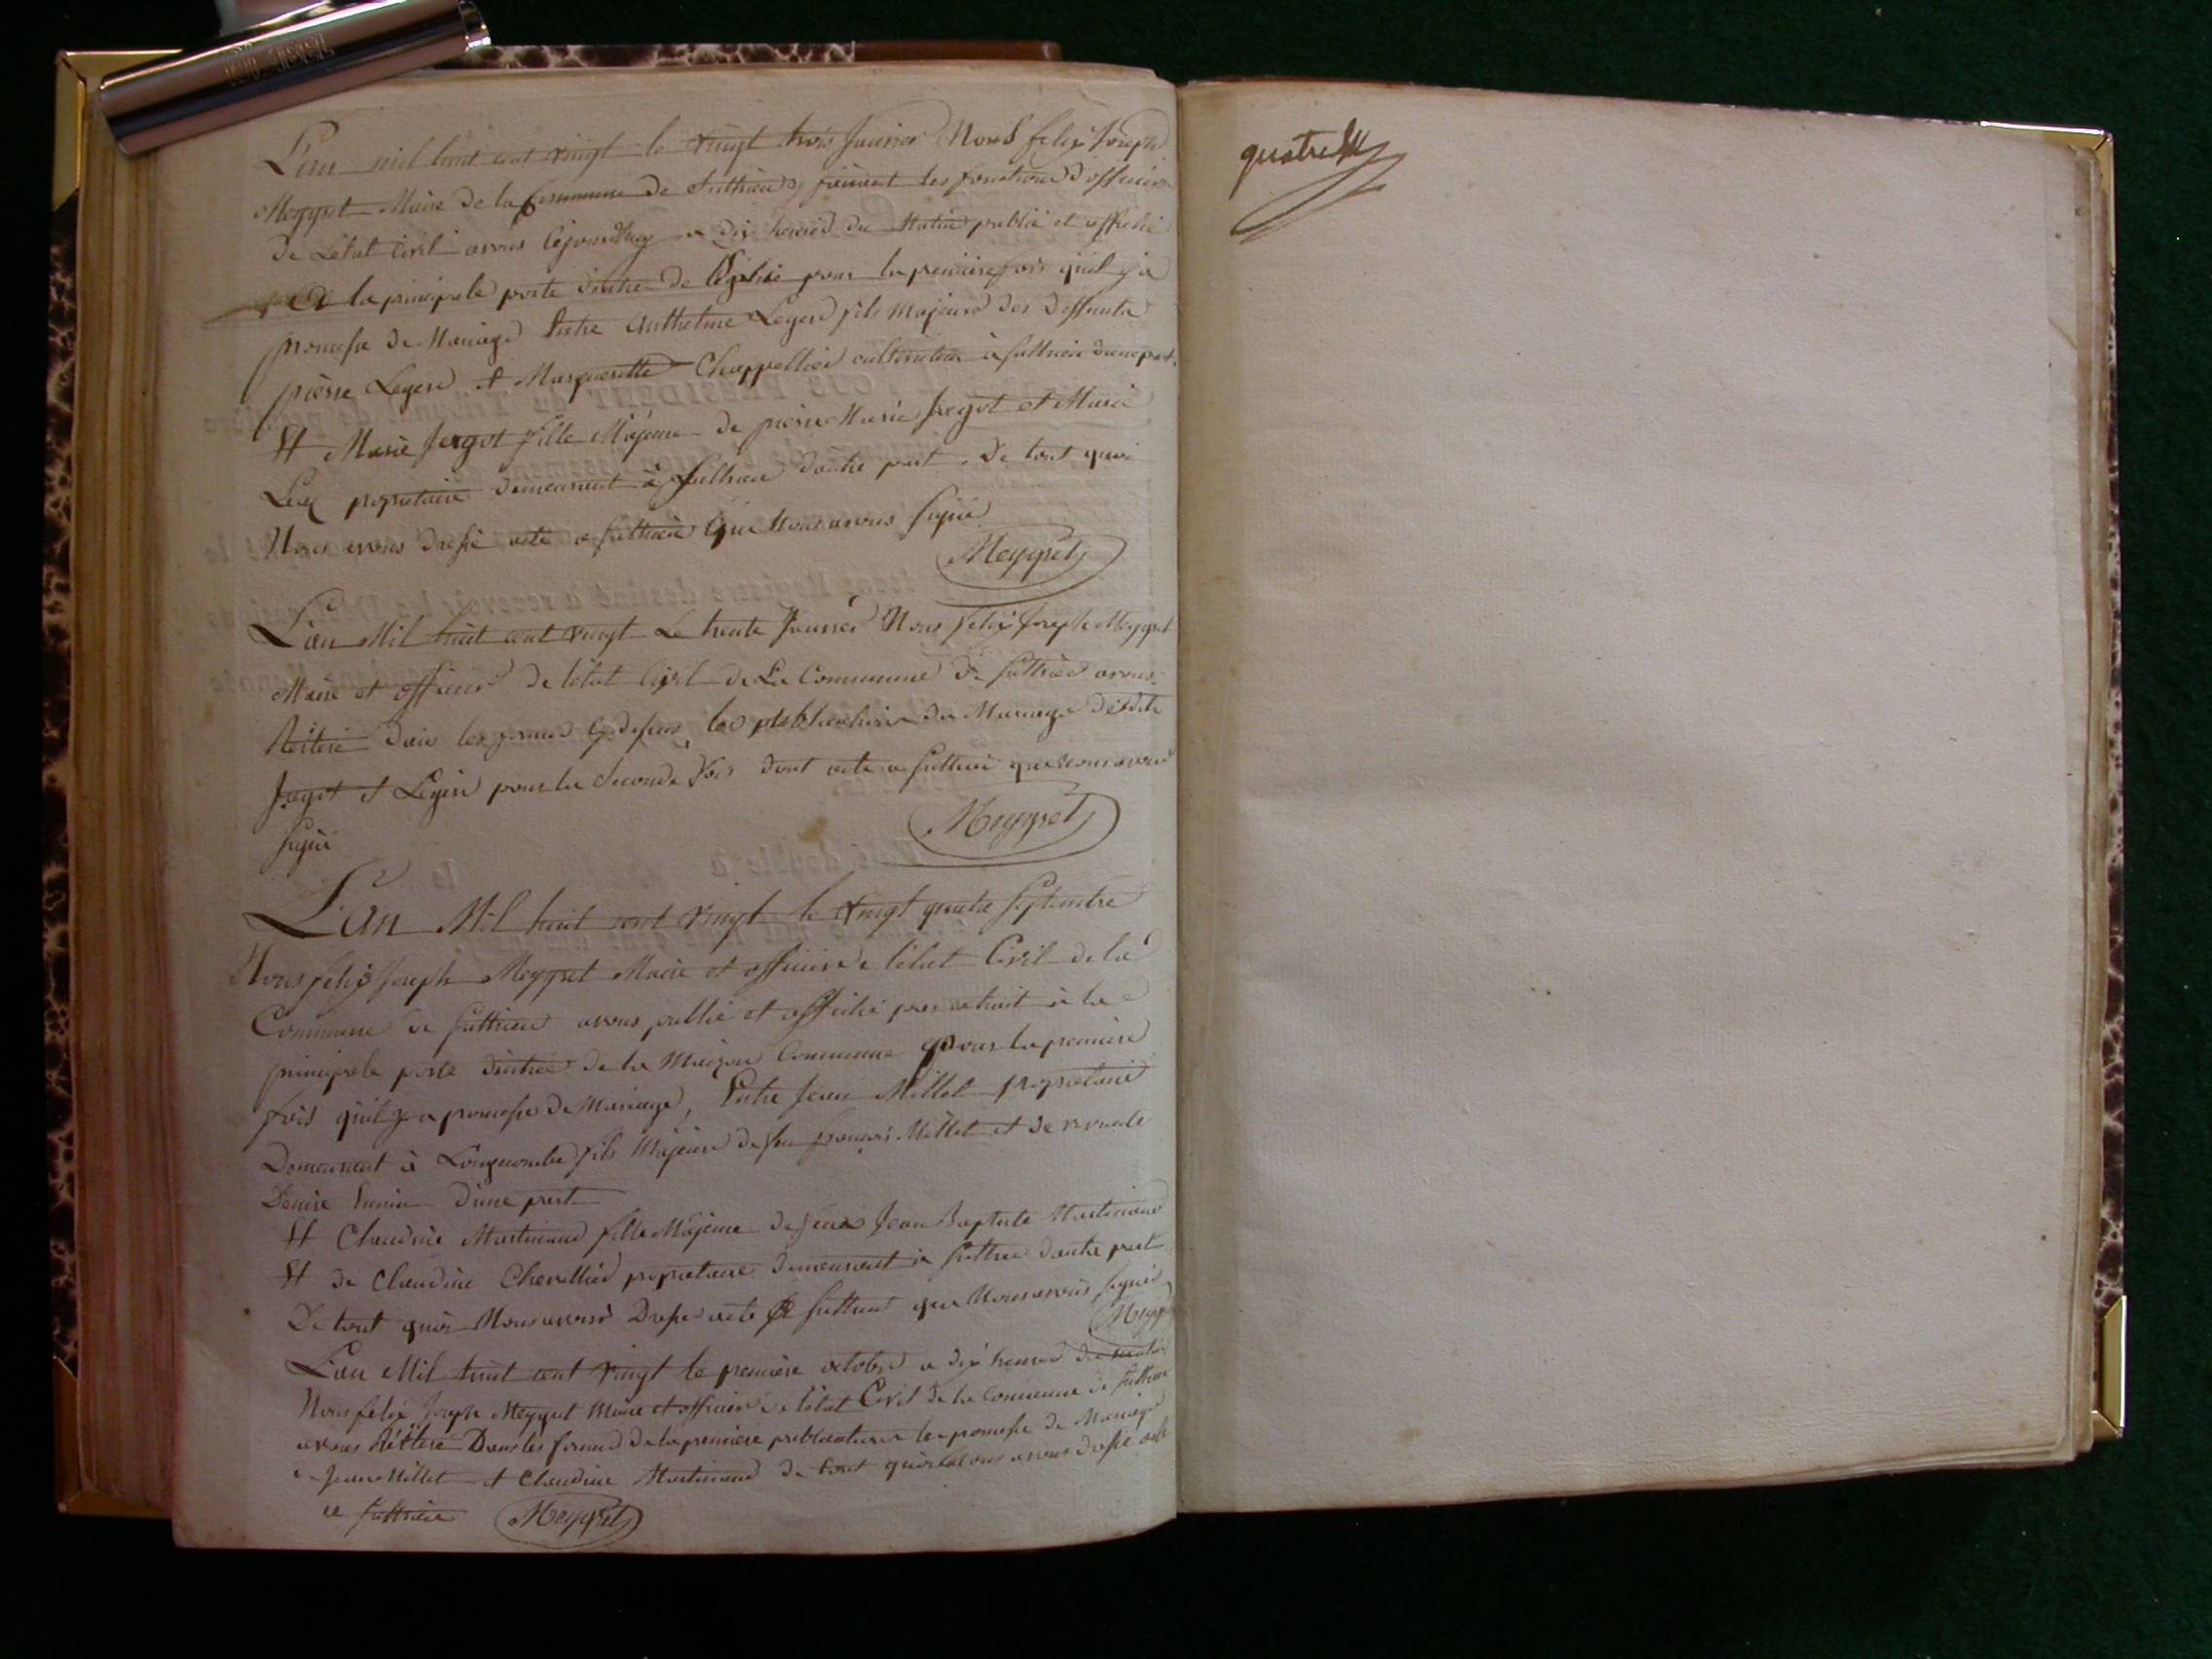 L'an mil huit cent vingt le vingt trois Janvier Nous felix Joseph
Meygret Maire de la Commune de Suthrieu faisient les fonctions d'officier
de L'etat Civil avons cejourdhuy a dix heures du Matin publié et affiché
a la principale porte d'entree de l'Eglise pour la premiere fois quil y a
promesse de Mariage Entre Anthelme Leger fils majeur des deffunts
pierre Leger et Margueritte Chappellier cultivateur à Suthrieu d'une part
Et Marie Jugot fille Majeure de pierre Marie Jugot et Marie
propretaire demeurent à Suthrieu dautre part, De tout quoi
Nous avons dressé acte a Suthrieu que Nous avons signé
Meygret
L'an Mil huit cent vingt Le trente Janvier Nous felix Joseph Meygret
Maire et officier de l'état Civil de La Commune de Suthrieu avons
Reiteré dans les formes cy dessus les publications du Mariage desdits
Jugot et Leger pour la Seconde Fois dont acte a Suthrieu que nous avons
signé
Meygret
L'an Mil huit cent vingt le vingt quatre Septembre
Nous felix Joseph Meygret Maire et officier de l'état Civil de la
Commune de Suthrieu avons publié et affiché par extrait à la
principale porte d'entrée de la Maizon Commune pour la premiere
fois quil y a promesse de Mariage, Entre Jean Millet propretaire
Demeurent à Longecombe fils Majeur de feu francois Millet et de
Denise d'une part
Et Claudine Martinand fille Majeure de feu Jean Baptiste Martinand
Et de Claudine Chevallier propretaire demeurent à Suthrieu dautre part
De tout quoi Nous avons Dressé acte a Suthrieu que Nous avons signé
Meyg
L'an Mil huit cent vingt le premiere octobre a dix heures du matin
Nous felix Joseph Meygret Maire et officier de l'état Civil de la Commune de Suthrieu
avons Réitere Dans les formes de la premiere publication les promesse de Mariage
de Jean Millet et Claudine Martinand de tout quoi Nous avons dressé acte
a Suthrieu Meygret
quatre